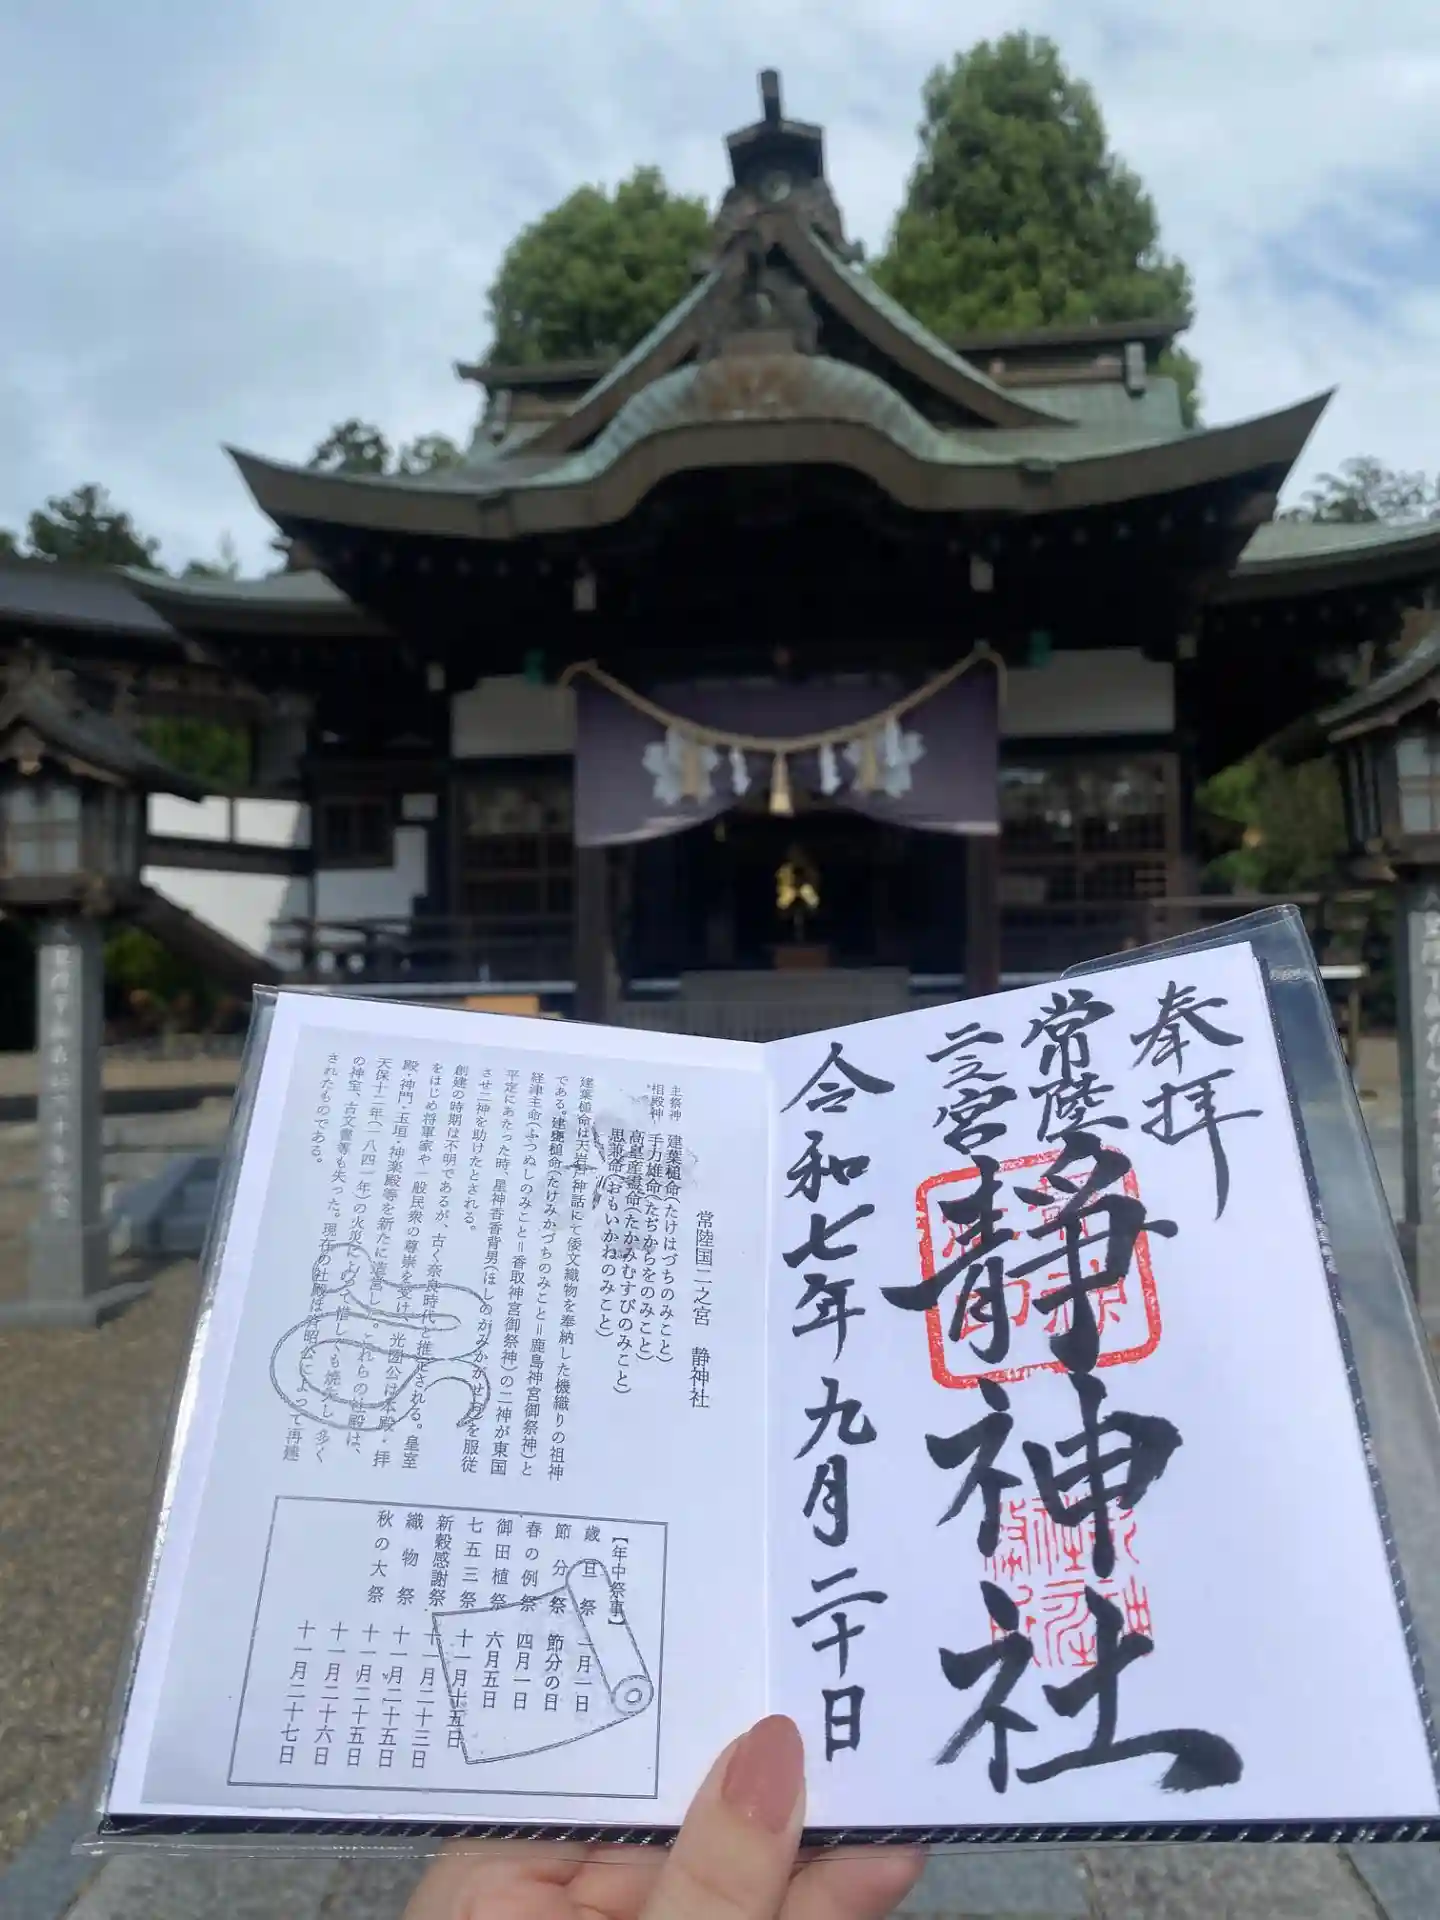 奉拝
常陸
二之宮
靜神社
令和七年九月二十日
常陸国二之宮　静神社
主祭神　建葉槌命(たけはづちのみこと)
相殿神　手力雄命(たぢからをのみこと)
高皇産霊命(たかみむすびのみこと)
思兼命(おもいかねのみこと)
建葉槌命は天岩戸神話にて倭文織物を奉納した機織りの祖神
である。建葉槌命(たけみかづちのみこと＝鹿島神宮御祭神)と
経津主命(ふつぬしのみこと＝香取神宮御祭神)の二神が東国
平定にあたった時、星神香香背男(ほしのかがみかがせお)を服従
させ二神を助けたとされる。
創建の時期は不明であるが、古く奈良時代と推定される。皇室
をはじめ将軍家や一般民衆の尊崇を受け、光圀公は本殿・拝
殿・神門・玉垣・神楽殿等を新たに造営した。これらの社殿は、
天保十二年(一八四一年)の火災によって惜しくも焼失し、多く
の神宝、古文書等も失った。現在の社殿は斉昭公によって再建
されたものである。
【年中祭事】
歳旦祭　一月一日
節分祭　節分の日
春の例祭　四月一日
御田植祭　六月五日
七五三祭　十一月十五日
新穀感謝祭　十一月二十三日
織物祭　十一月二十五日
秋の大祭　十一月二十五日
十一月二十六日
十一月二十七日